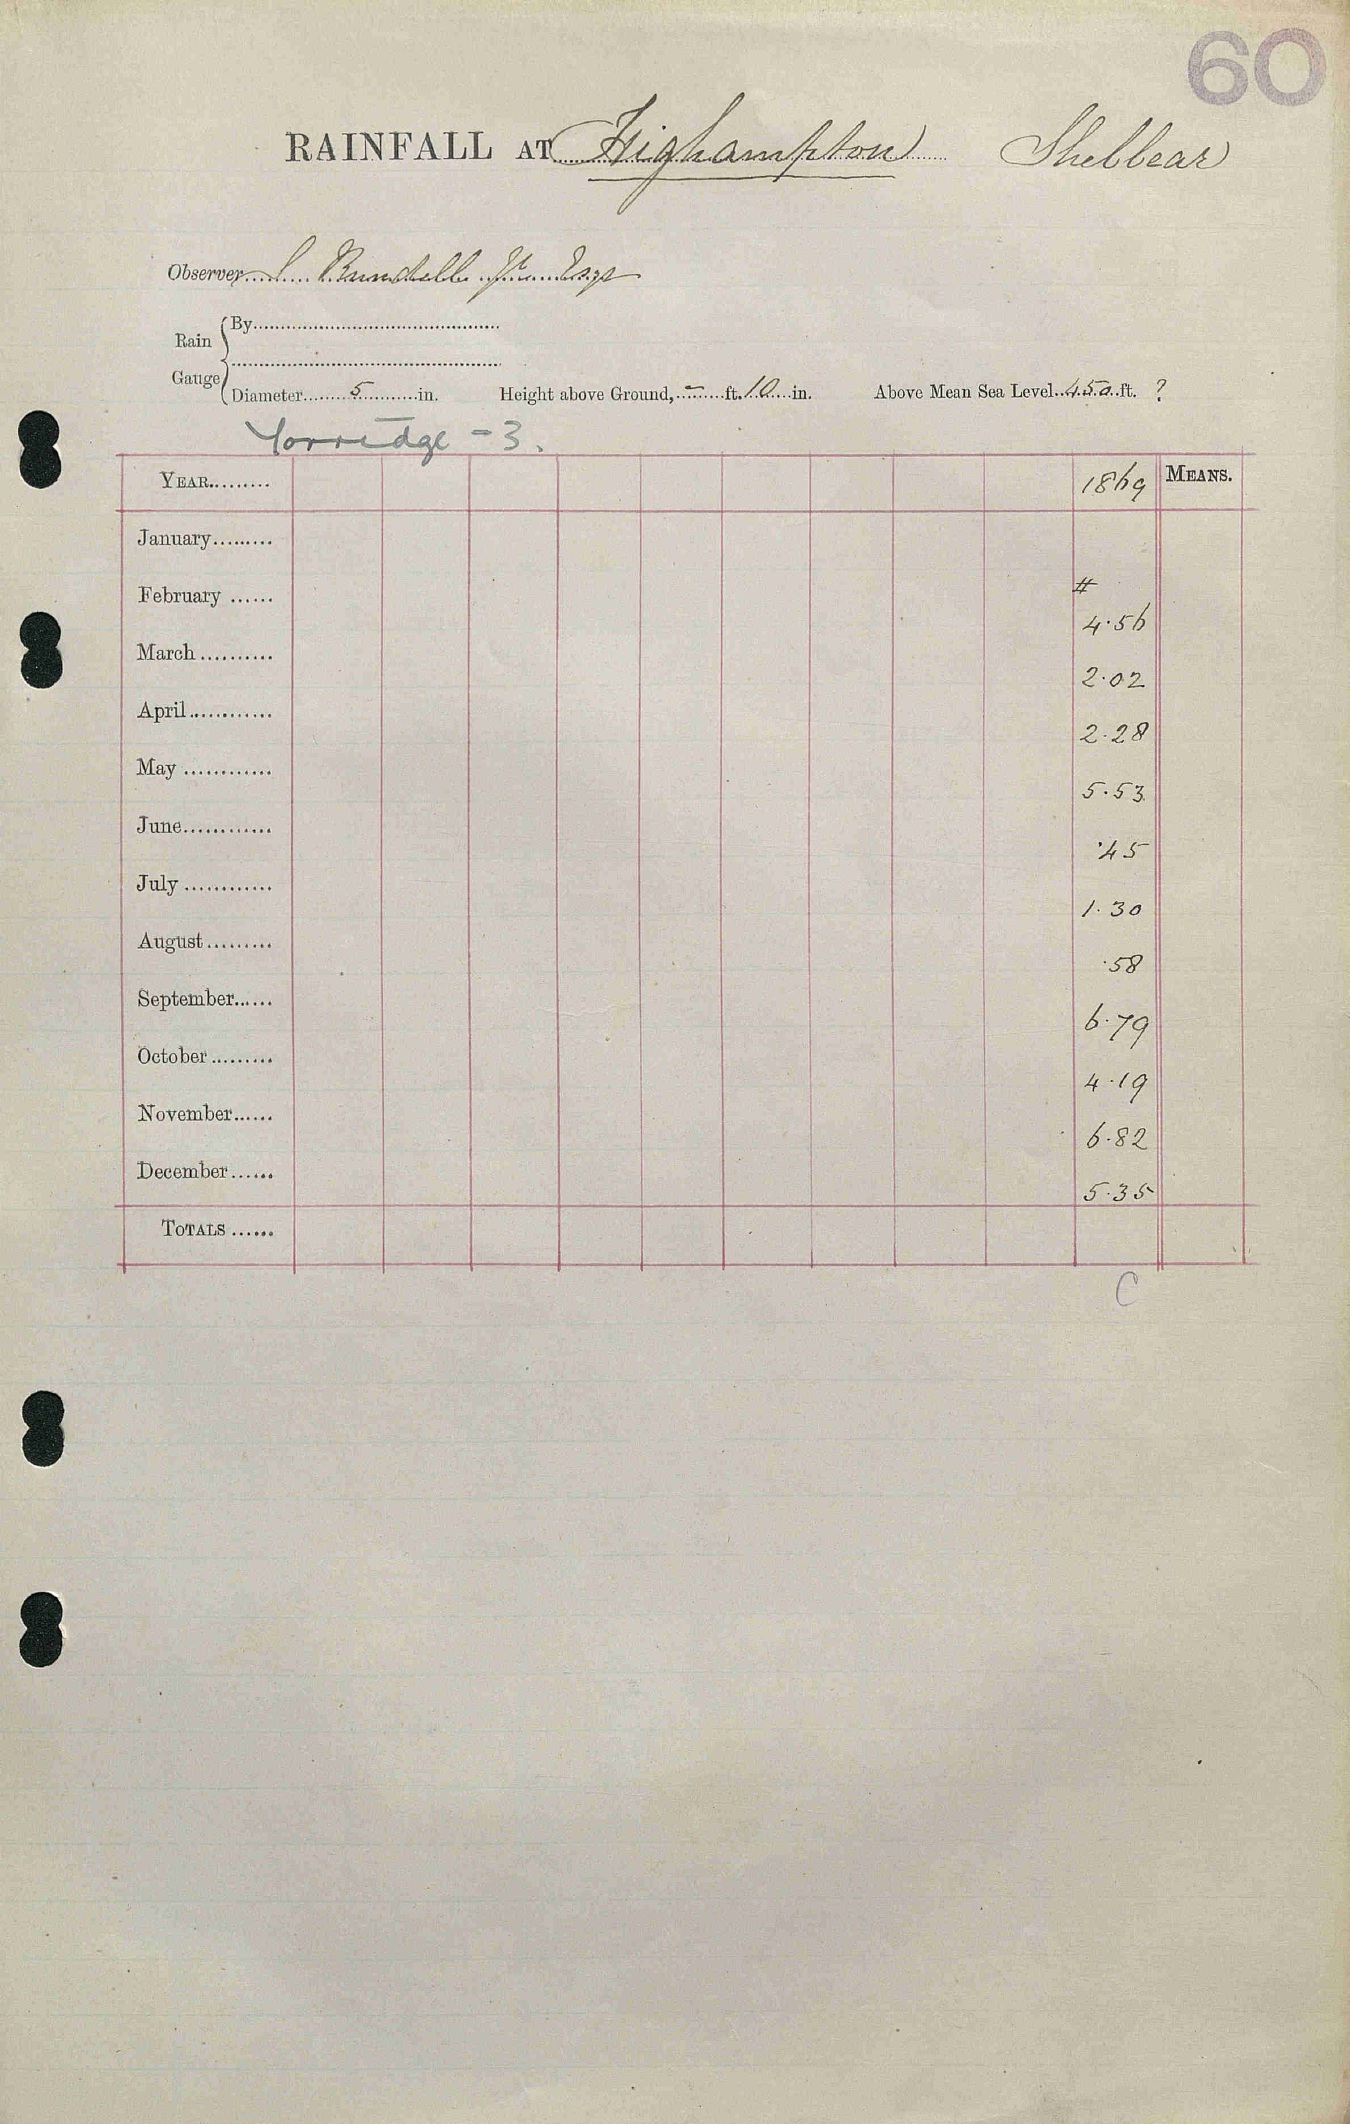 60
RAINFALL AT Highampton Shebbear
Observer Rundell Esqr
Rain Gauge By
Diameter 5 in. Height above Ground, - ft. 10 in. Above Mean Sea Level 450 ft. ?
- 3.
YEAR 1869 MEANS.
January
February #
4.56
March
2.02
April
2.28
May
5.53
June
.45
July
1.30
August
.58
September
6.79
October
4.19
November
6.82
December
5.35
TOTALS
C